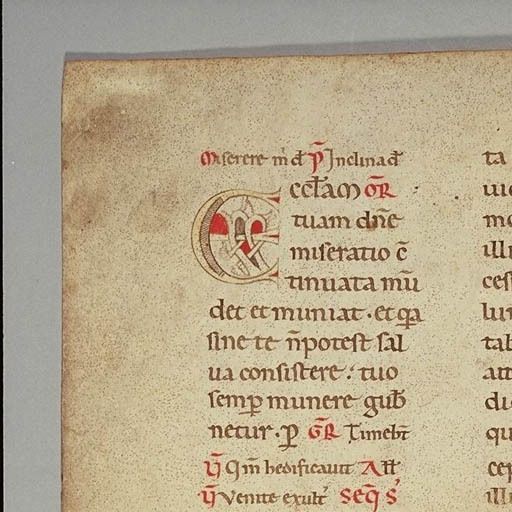 Miserere m̉ d̄ p̄ Jnclina d̄
Ecclam OR̄
tuam dn̄e
miseratio c̄
tinuata mū
det et muniat · et qa
sine te n̄ potest sal
ua consistere : tuo
semp munere gub̄
netur · p GR̄ Timeb̄t
V̄ Qm̄ hedificauit All̄
V̄ Venite exult̉ Seq̄ s̉
ta
uic
mo
illi
ces
lur
tab
att
di
qu
cep
illi